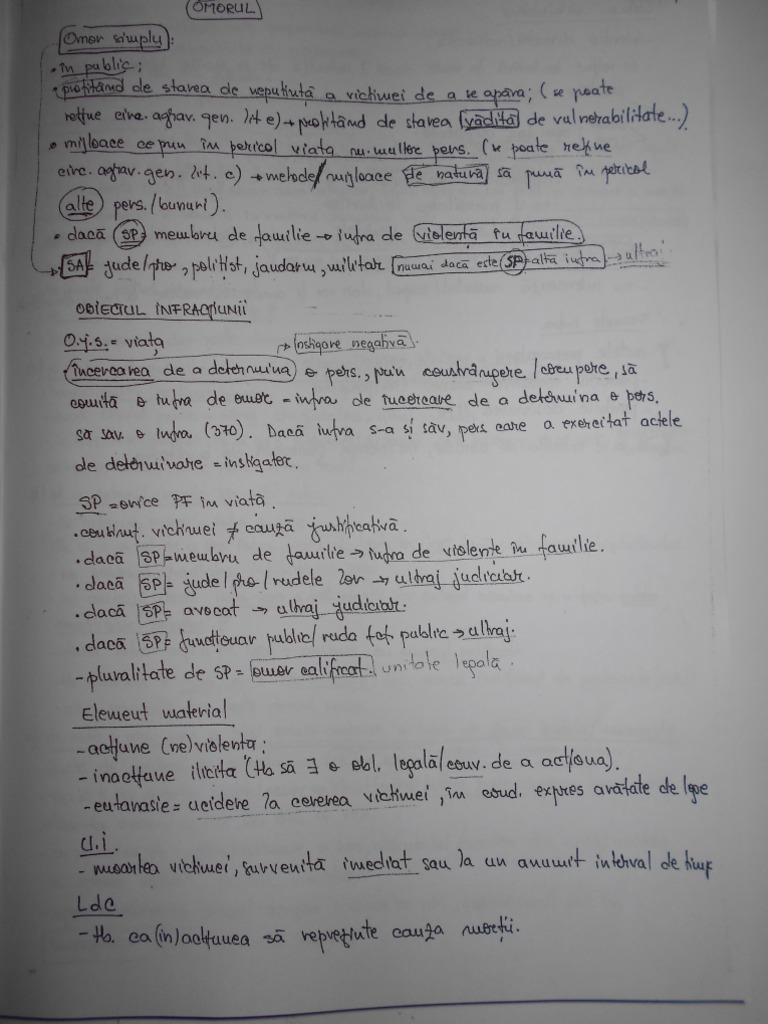 OMORUL
Omor simplu:
• în public;
• profitând de starea de neputință a victimei de a se apăra; (se poate
reține circ. agrav. gen. lit e) → profitând de starea vădită de vulnerabilitate...)
• mijloace ce pun în pericol viața mai multor pers. (se poate reține
circ. agrav. gen. lit. c) → metode/mijloace de natură să pună în pericol
alte pers./bunuri).
• dacă SP = membru de familie → infra de violență în familie.
SA = jude/pro, polițist, jandarm, militar numai dacă este SP = altă infra → ultraj
OBIECTUL INFRACȚIUNII
O.j.s. = viața
→ instigare negativă.
• încercarea de a determina o pers., prin constrângere/corupere, să
comită o infra de omor = infra de încercare de a determina o pers.
să sav. o infra (370). Dacă infra s-a și săv, pers care a exercitat actele
de determinare = instigator.
SP = orice PF în viață.
• consimț. victimei ≠ cauză justificativă.
• dacă SP = membru de familie → infra de violențe în familie.
• dacă SP = jude/pro/rudele lor → ultraj judiciar.
• dacă SP = avocat → ultraj judiciar.
• dacă SP = funcționar public/ruda fcț. public → ultraj.
- pluralitate de SP = omor calificat. unitate legală.
Element material
- acțiune (ne)violentă;
- inacțiune ilicită (tb. să ∃ o obl. legală/conv. de a acționa).
- eutanasie = ucidere la cererea victimei, în cond. expres arătate de lege
U.i.
- moartea victimei, survenită imediat sau la un anumit interval de timp
LdC
- tb. ca (in)acțiunea să reprezinte cauza morții.